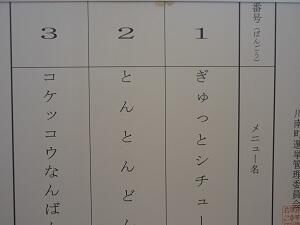 川南町選挙管理委員会
番号(ばんごう)
メニュー名
1
ぎゅっとシチュー
2
とんとんどん
3
コケッコウなんばん